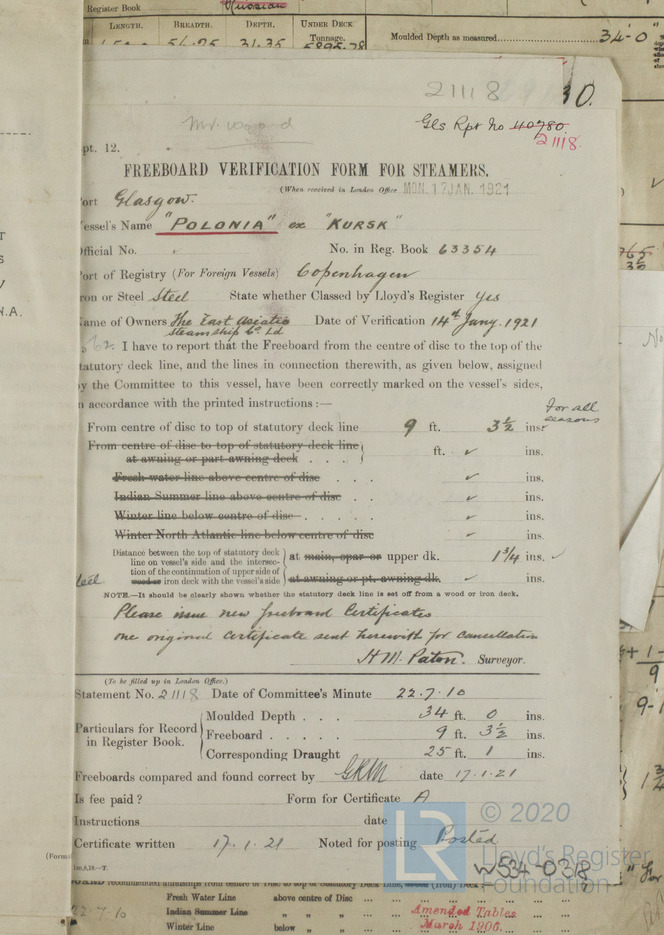 Register Book Russian
LENGTH. BREADTH. DEPTH. UNDER DECK Tonnage.
51.25 31.35 5895.78
Moulded Depth as measured 34-0
21118 30.
Mr. Wood
Gls Rpt No 40780
21118.
pt. 12.
FREEBOARD VERIFICATION FORM FOR STEAMERS.
(When received in London Office MON. 17 JAN. 1921
ort Glasgow.
essel's Name "POLONIA" ex "KURSK"
fficial No. No. in Reg. Book 63354
ort of Registry (For Foreign Vessels) Copenhagen
ron or Steel Steel State whether Classed by Lloyd's Register yes
ame of Owners The East Asiatic Steamship Co. Ld Date of Verification 14th Jany. 1921
62. I have to report that the Freeboard from the centre of disc to the top of the
tatutory deck line, and the lines in connection therewith, as given below, assigned
y the Committee to this vessel, have been correctly marked on the vessel's sides,
n accordance with the printed instructions :—
For all seasons
From centre of disc to top of statutory deck line 9 ft. 3½ ins.
From centre of disc to top of statutory deck line
at awning or part awning deck . . . ft. ✓ ins.
Fresh water line above centre of disc . . . ✓ ins.
Indian Summer line above centre of disc . . ✓ ins.
Winter line below centre of disc . . . . . ✓ ins.
Winter North Atlantic line below centre of disc ✓ ins.
Distance between the top of statutory deck
line on vessel's side and the intersec- at main, spar or upper dk. 1¾ ins. ✓
tion of the continuation of upper side of
wood or iron deck with the vessel's side at awning or pt. awning dk. ✓ ins.
NOTE.—It should be clearly shown whether the statutory deck line is set off from a wood or iron deck.
Please issue new freeboard Certificates
one original Certificate sent herewith for cancellation
H M. Paton. Surveyor.
(To be filled up in London Office.)
Statement No. 21118 Date of Committee's Minute 22.7.10
Particulars for Record in Register Book.
Moulded Depth . . . 34 ft. 0 ins.
Freeboard . . . . . 9 ft. 3½ ins.
Corresponding Draught 25 ft. 1 ins.
Freeboards compared and found correct by GRM date 17.1.21
Is fee paid ? Form for Certificate A
Instructions date
Certificate written 17.1.21 Noted for posting Posted
© 2020
LR
Lloyd's Register
Foundation
W534-0318
(Form
Fresh Water Line above centre of Disc
22-7-10 Indian Summer Line " "
Winter Line below "
Amended Tables
March 1906.
"For